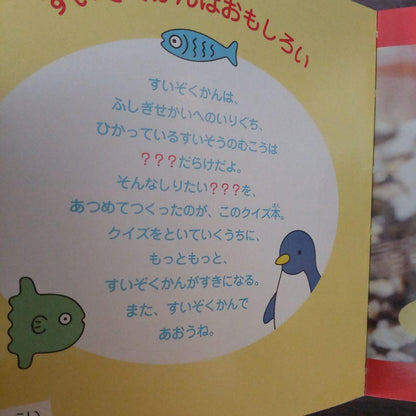 すいぞくかんはおもしろい
すいぞくかんは、
ふしぎせかいへのいりぐち、
ひかっているすいそうのむこうは
???だらけだよ。
そんなしりたい???を、
あつめてつくったのが、このクイズ本。
クイズをといていくうちに、
もっともっと、
すいぞくかんがすきになる。
また、すいぞくかんで
あおうね。